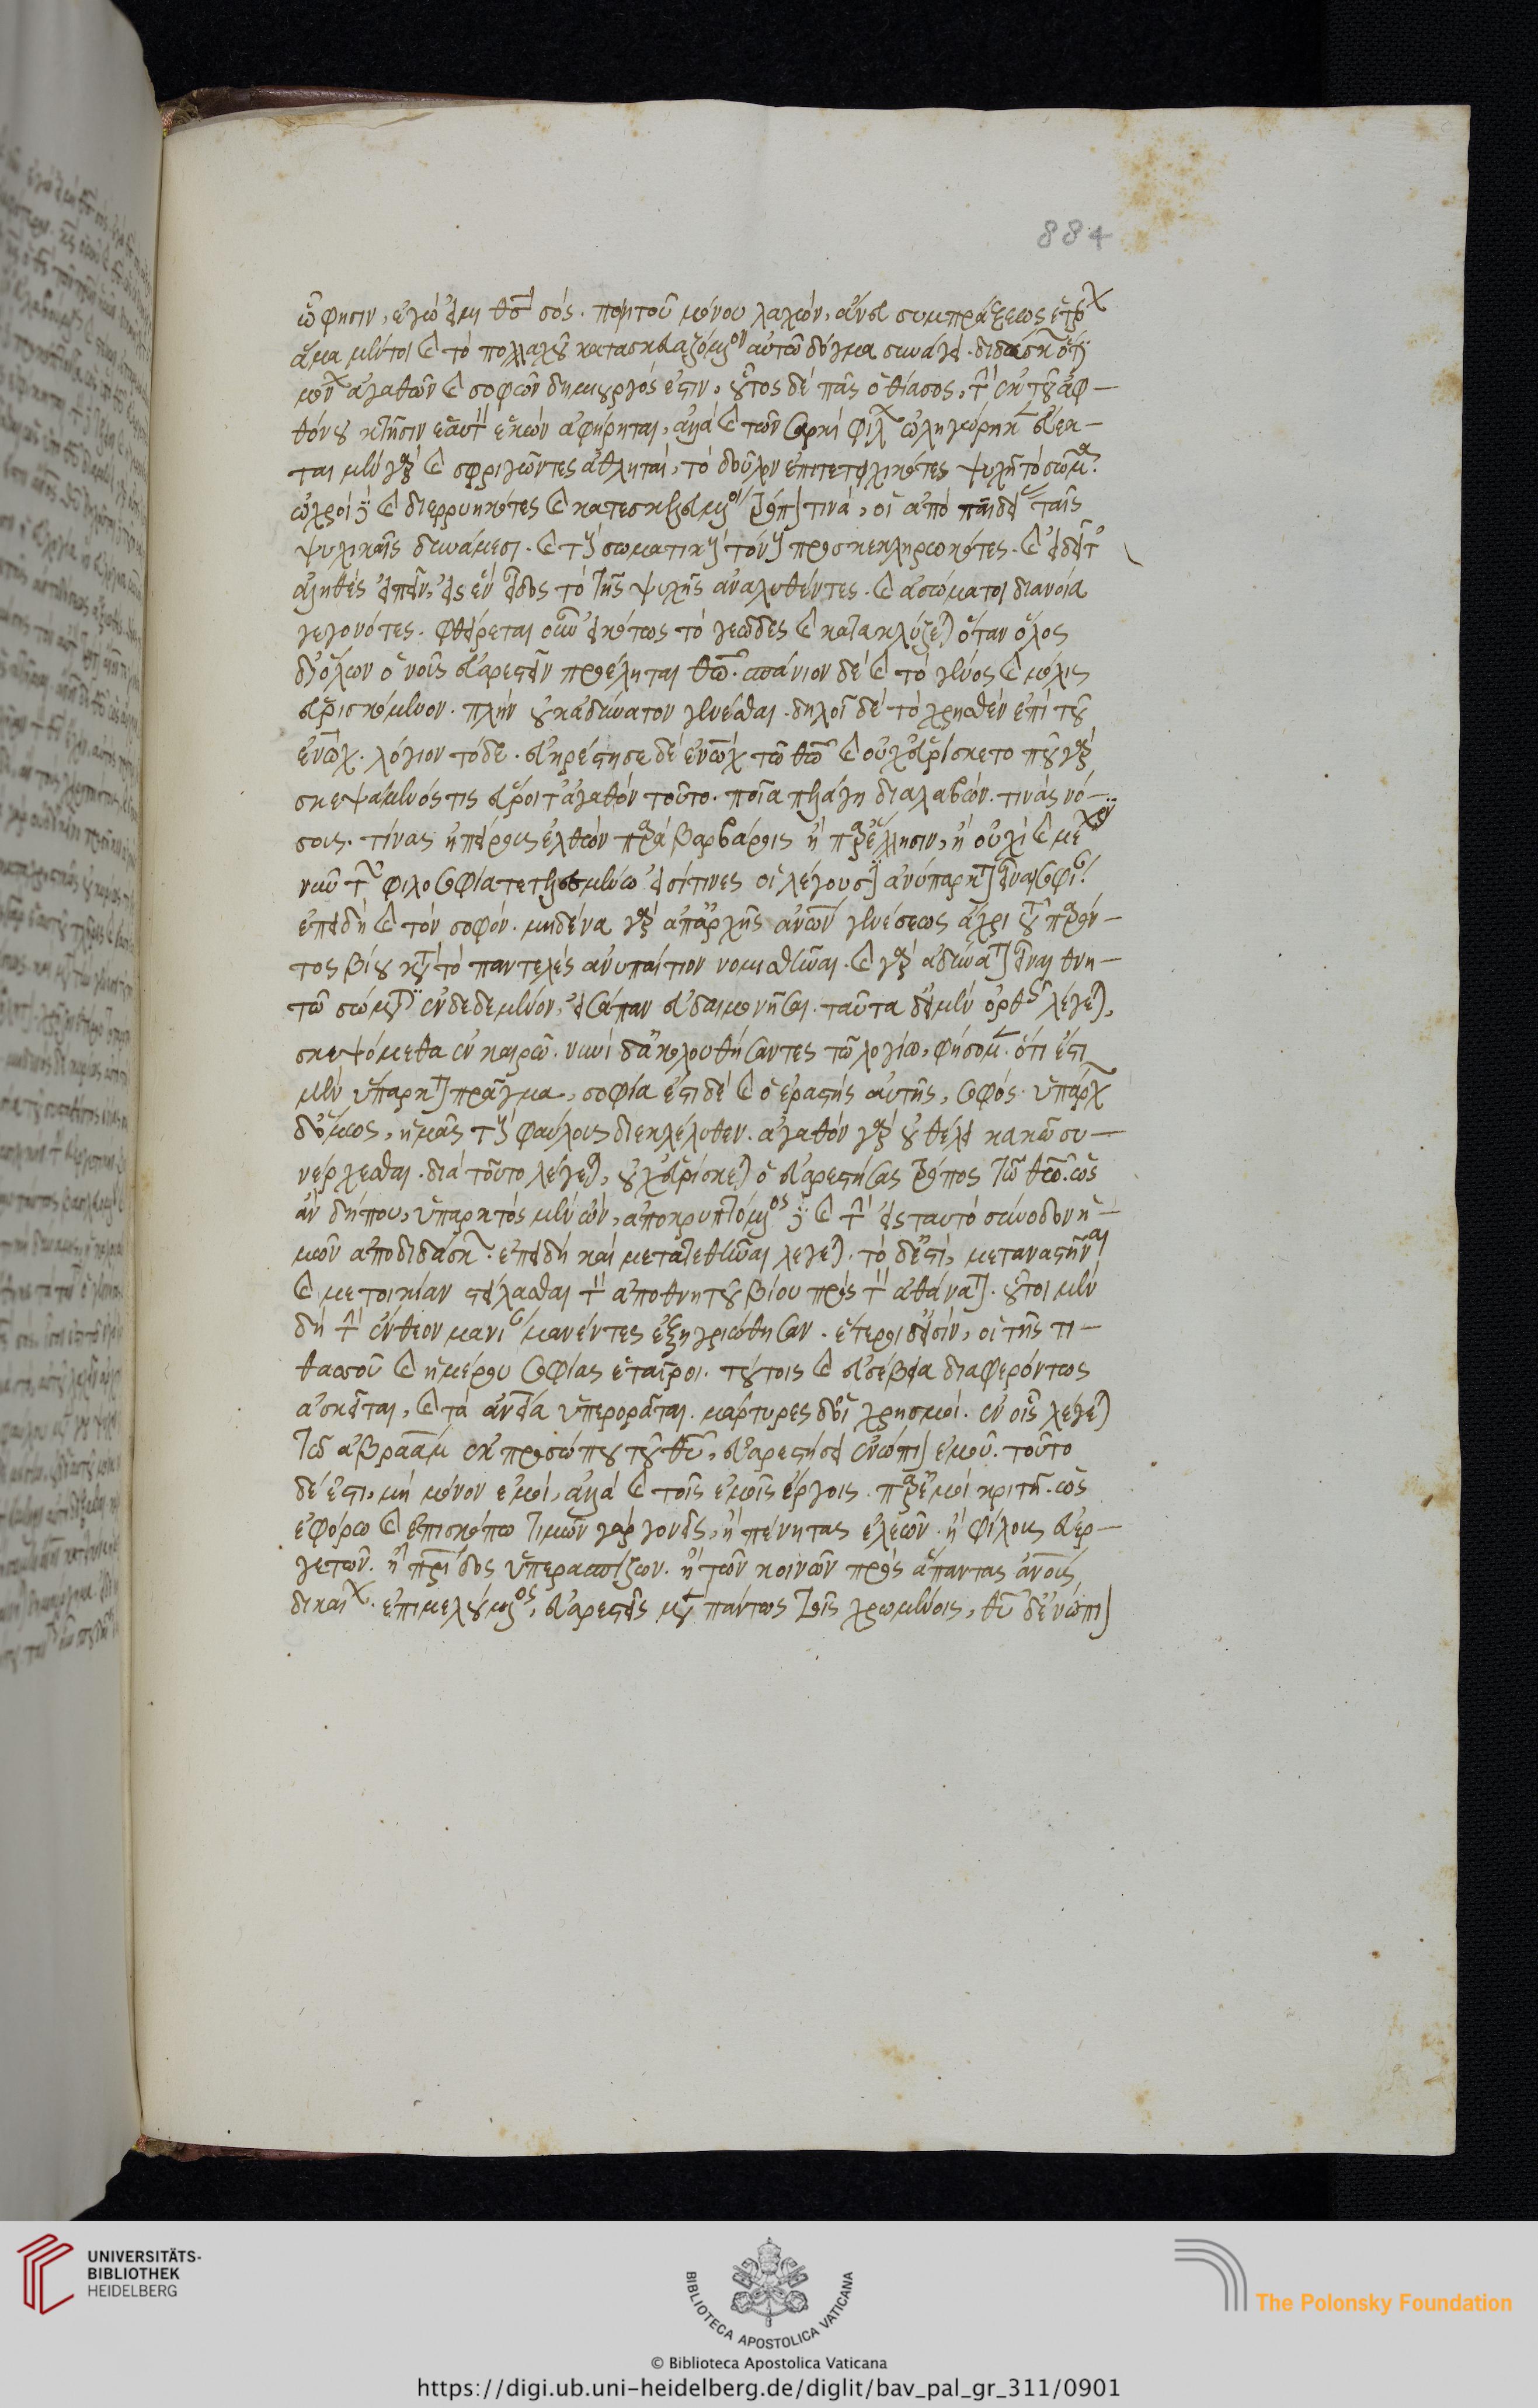 ᾧ φησιν, ἐγώ εἰμι θς σός. ποιητοῦ μόνου λαχών, ἄνευ συμπράξεως ἑτέρων
ἅμα μέντοι καὶ τὸ πολλαχοῦ κατασκευαζόμενον αὐτῶ δόγμα συνάγει. διδάσκων ὅτι
μόνων ἀγαθῶν καὶ σοφῶν δημιουργός ἐστιν, οὗτος δὲ πᾶς ὁ θίασος, τὴν ἐκ τοῦ ἀφ-
θόνου κτῆσιν ἑαυτὸν ἑκὼν ἀφήρηται, ἀλλὰ καὶ τῶν σαρκὶ φίλων ὠλιγώρηκεν εὐέκ-
ται μὲν γὰρ καὶ σφριγῶντες ἀθληταί, τὸ δοῦλον ἐπιτετειχικότες ψυχῆ τὸ σῶμα.
ὠχροὶ δὲ καὶ διερρυηκότες καὶ κατεσκελευμένοι τρόπον τινά, οἱ ἀπὸ παιδείας ταῖς
ψυχικαῖς δυνάμεσι. καὶ τοὺς σωματικοὺς τόνους προσκεκληρωκότες. καὶ εἰ δεῖ τ'
ἀληθὲς εἰπεῖν, εἰς ἓν εἶδος τὸ τῆς ψυχῆς ἀναλυθέντες. καὶ ἀσώματοι διανοία
γεγονότες. φθείρεται οὖν εἰκότως τὸ γεῶδες καὶ κατακλύζεται ὅταν ὅλος
δι' ὅλων ὁ νοῦς εὐαρεστεῖν προέληται θῶ. σπάνιον δὲ καὶ τὸ γένος καὶ μόλις
εὑρισκόμενον. πλὴν οὐκ ἀδύνατον γενέσθαι. δηλοῖ δὲ τὸ χρησθὲν ἐπὶ τοῦ
ἐνώχ. λόγιον τόδε. εὐηρέστησε δὲ ἐνὼχ τῶ θῶ καὶ οὐχ εὑρίσκετο ποῦ γὰρ
σκεψάμενός τις εὕροι τἀγαθὸν τοῦτο. ποῖα πελάγη διαλαβών. τινὰς νή-
σους. τίνας ἠπείρους ἐλθὼν παρὰ βαρβάροις ἢ παρ' ἕλλησιν, ἢ οὐχὶ καὶ μέχρι
νῦν τῶν φιλοσοφία τετελεσμένων εἰσί τινες οἳ λέγουσιν ἀνύπαρκτον εἶναι σοφίαν
ἐπειδὴ καὶ τὸν σοφόν. μηδένα γὰρ ἀπ' ἀρχῆς ἀνων γενέσεως ἄχρι τοῦ παρόν-
τος βίου κατὰ τὸ παντελὲς ἀνυπαίτιον νομισθῆναι. καὶ γὰρ ἀδύνατον εἶναι θνη-
τῶ σώματι ἐνδεδεμένον, εἰσάπαν εὐδαιμονῆσαι. ταῦτα δ' εἰ μὲν ὀρθῶς λέγεται,
σκεψόμεθα ἐν καιρῶ. νυνὶ δ' ἀκολουθήσαντες τῶ λογίω, φήσομεν. ὅτι ἔστι
μὲν ὕπαρκτον πρᾶγμα, σοφία ἔστι δὲ καὶ ὁ ἐραστὴς αὐτῆς, σοφός. ὑπάρχων
δ' ὅμως, ἡμᾶς τοὺς φαύλους διεκλέλυθεν. ἀγαθὸν γὰρ οὐ θέλει κακῶ συ-
νέρχεσθαι. διὰ τοῦτο λέγεται, οὐχ εὑρίσκεται ὁ εὐαρεστήσας τρόπος τῶ θῶ. ὡς
ἂν δήπου, ὑπαρκτὸς μὲν ὤν, ἀποκρυπτόμενος δὲ καὶ τὴν εἰς ταυτὸ σύνοδον ἡ-
μῶν ἀποδιδάσκων. ἐπειδὴ καὶ μετατεθῆναι λέγεται. τὸ δ' ἐστί, μεταναστῆναι
καὶ μετοικίαν στείλασθαι τὴν ἀπὸ θνητοῦ βίου πρὸς τὸν ἀθάνατον. οὗτοι μὲν
δὴ τὴν ἔνθεον μανίαν μανέντες ἐξηγριώθησαν. ἕτεροι δ' εἰσίν, οἱ τῆς τι-
θασοῦ καὶ ἡμέρου σοφίας ἑταῖροι. τούτοις καὶ εὐσέβεια διαφερόντως
ἀσκεῖται, καὶ τὰ ἀνεια ὑπερορᾶται. μάρτυρες δ' οἱ χρησμοί. ἐν οἷς λέγεται
τῶ ἀβραὰμ ἐκ προσώπου τοῦ θυ, εὐαρεστήσει ἐνώπιον ἐμοῦ. τοῦτο
δέ ἐστι, μὴ μόνον ἐμοί, ἀλλὰ καὶ τοῖς ἐμοῖς ἔργοις. παρ' ἐμοὶ κριτῆ. ὡς
ἐφόρω καὶ ἐπισκόπω τιμῶν γὰρ γονεῖς, ἢ πένητας ἐλεῶν. ἢ φίλους εὐερ-
γετῶν. ἢ πρίδος ὑπερασπίζων. ἢ τῶν κοινῶν πρὸς ἅπαντας ἀνους
δικαίων. ἐπιμελούμενος, εὐαρεστεῖς μὲν πάντως τοῖς χρωμένοις, θυ δ' ἐνώπιον
884
UNIVERSITÄTS-
BIBLIOTHEK
HEIDELBERG
BIBLIOTECA APOSTOLICA VATICANA
The Polonsky Foundation
© Biblioteca Apostolica Vaticana
https://digi.ub.uni-heidelberg.de/diglit/bav_pal_gr_311/0901